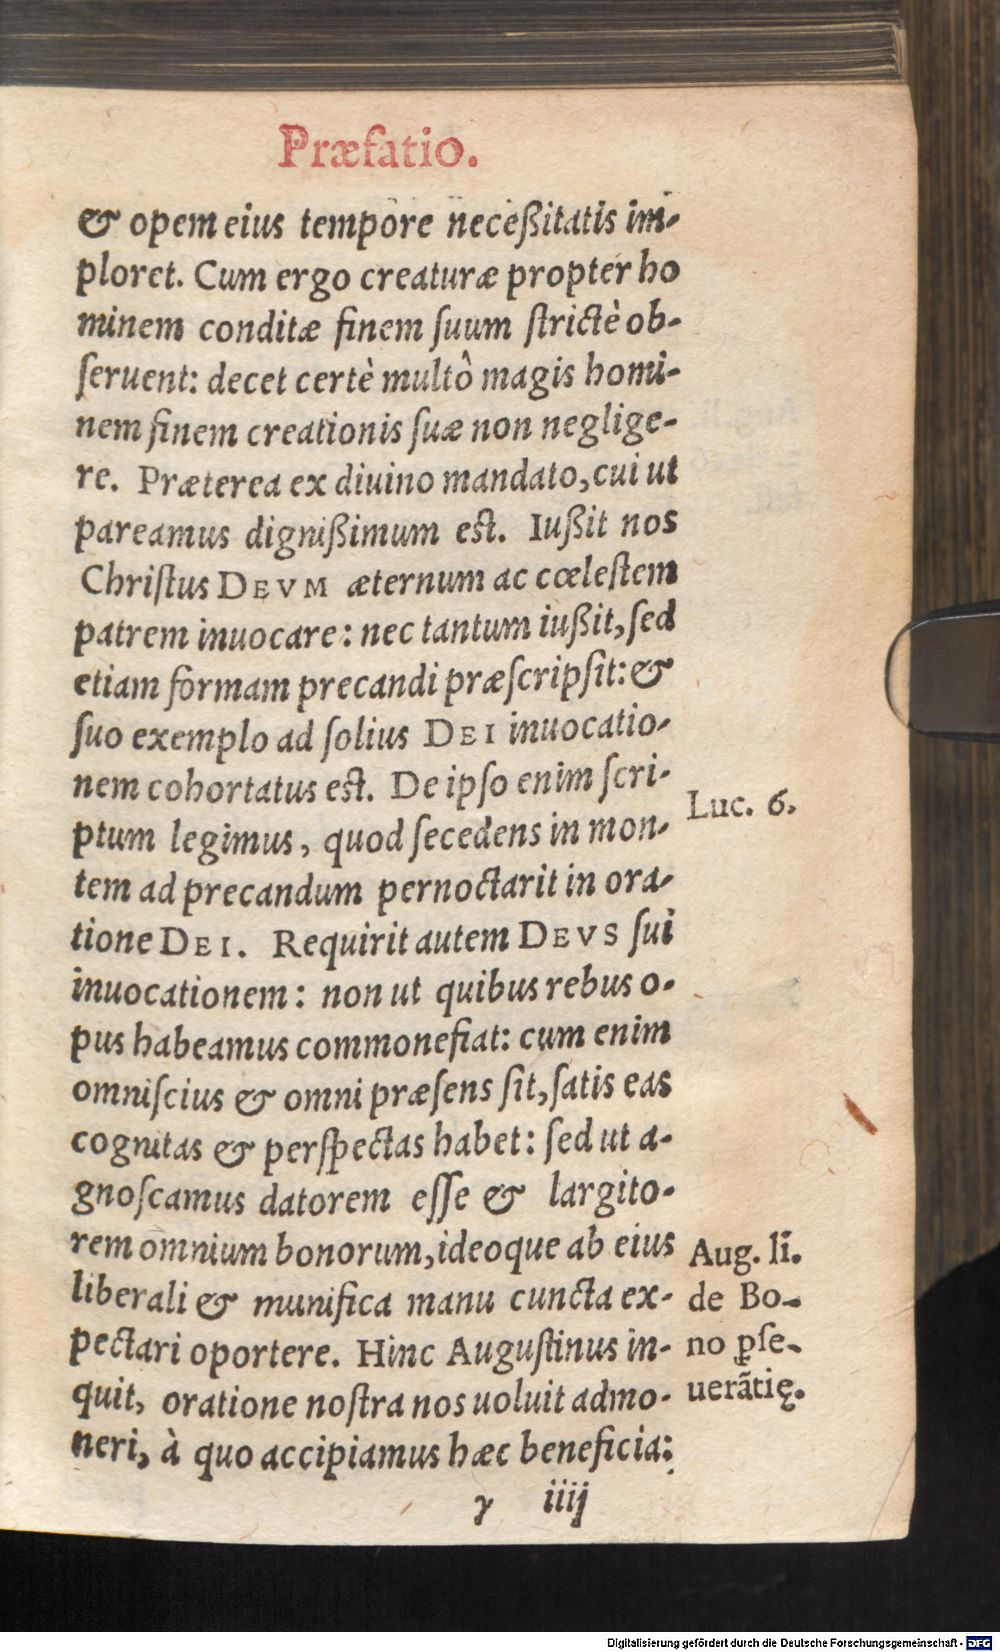 Præfatio.
& opem eius tempore neceßitatis im-
ploret. Cum ergo creaturæ propter ho
minem conditæ finem ſuum ſtrictè ob-
ſeruent: decet certè multò magis homi-
nem finem creationis ſuæ non neglige-
re. Præterea ex diuino mandato, cui ut
pareamus dignißimum eſt. Iußit nos
Chriſtus DEVM æternum ac cœleſtem
patrem inuocare: nec tantum iußit, ſed
etiam formam precandi præſcripſit: &
ſuo exemplo ad ſolius DEI inuocatio-
nem cohortatus eſt. De ipſo enim ſcri-
ptum legimus, quod ſecedens in mon-
tem ad precandum pernoctarit in ora-
tione DEI. Requirit autem DEVS ſui
inuocationem: non ut quibus rebus o-
pus habeamus commonefiat: cum enim
omniſcius & omni præſens ſit, ſatis eas
cognitas & perſpectas habet: ſed ut a-
gnoſcamus datorem eſſe & largito-
rem omnium bonorum, ideoque ab eius
liberali & munifica manu cuncta ex-
pectari oportere. Hinc Auguſtinus in-
quit, oratione noſtra nos uoluit admo-
neri, à quo accipiamus hæc beneficia:
γ iiij
Luc. 6.
Aug. li.
de Bo-
no ꝑſe-
uerãtię.
Digitalisierung gefördert durch die Deutsche Forschungsgemeinschaft - DFG